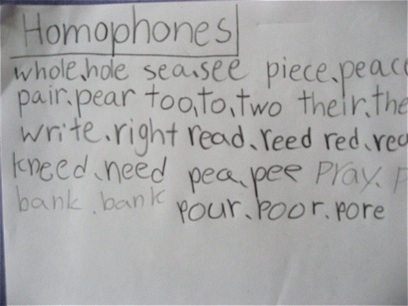 Homophones
whole.hole sea.see piece.peac
pair.pear too,to,two their.the
write.right read.reed red.rea
kneed.need pea.pee Pray. P
bank.bank pour.poor.pore